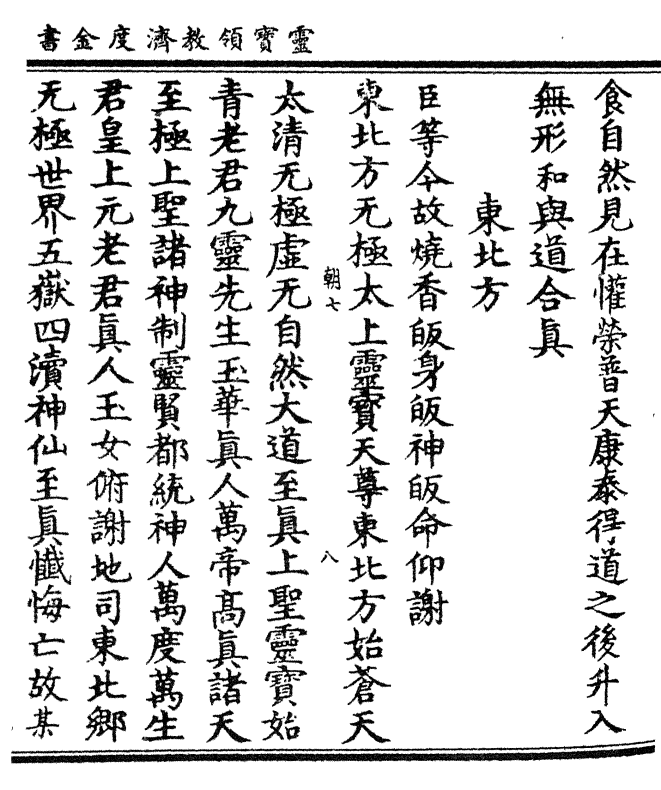 靈寶領教濟度金書
食自然見在懽榮普天康泰得道之後升入
無形和與道合眞
東北方
臣等今故燒香皈身皈神皈命仰謝
東北方无極太上靈寶天尊東北方始蒼天
朝七 八
太清无極虛无自然大道至眞上聖靈寶始
青老君九靈先生玉華眞人萬帝高眞諸天
至極上聖諸神制靈賢都統神人萬度萬生
君皇上元老君眞人玉女俯謝地司東北鄉
无極世界五嶽四瀆神仙至眞懺悔亡故某